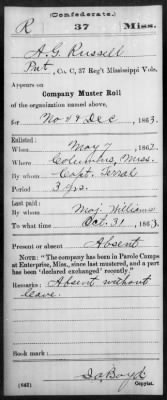 (Confederate.)
R 37 Miss.
A. G. Russell
Pvt, Co. C, 37 Reg't Mississippi Vols.
Appears on
Company Muster Roll
of the organization named above,
for Nov & Dec, 1863.
Enlisted:
When May 7, 1862.
Where Columbus, Miss.
By whom Capt. Terral
Period 3 yrs.
Last paid:
By whom Maj. Williams
To what time Oct. 31, 1863.
Present or absent Absent
NOTE: "The company has been in Parole Camps
at Enterprise, Miss., since last mustered, and a part
has been 'declared exchanged' recently."
Remarks: Absent without
leave.
Book mark:
(642) Boyd
Copyist.